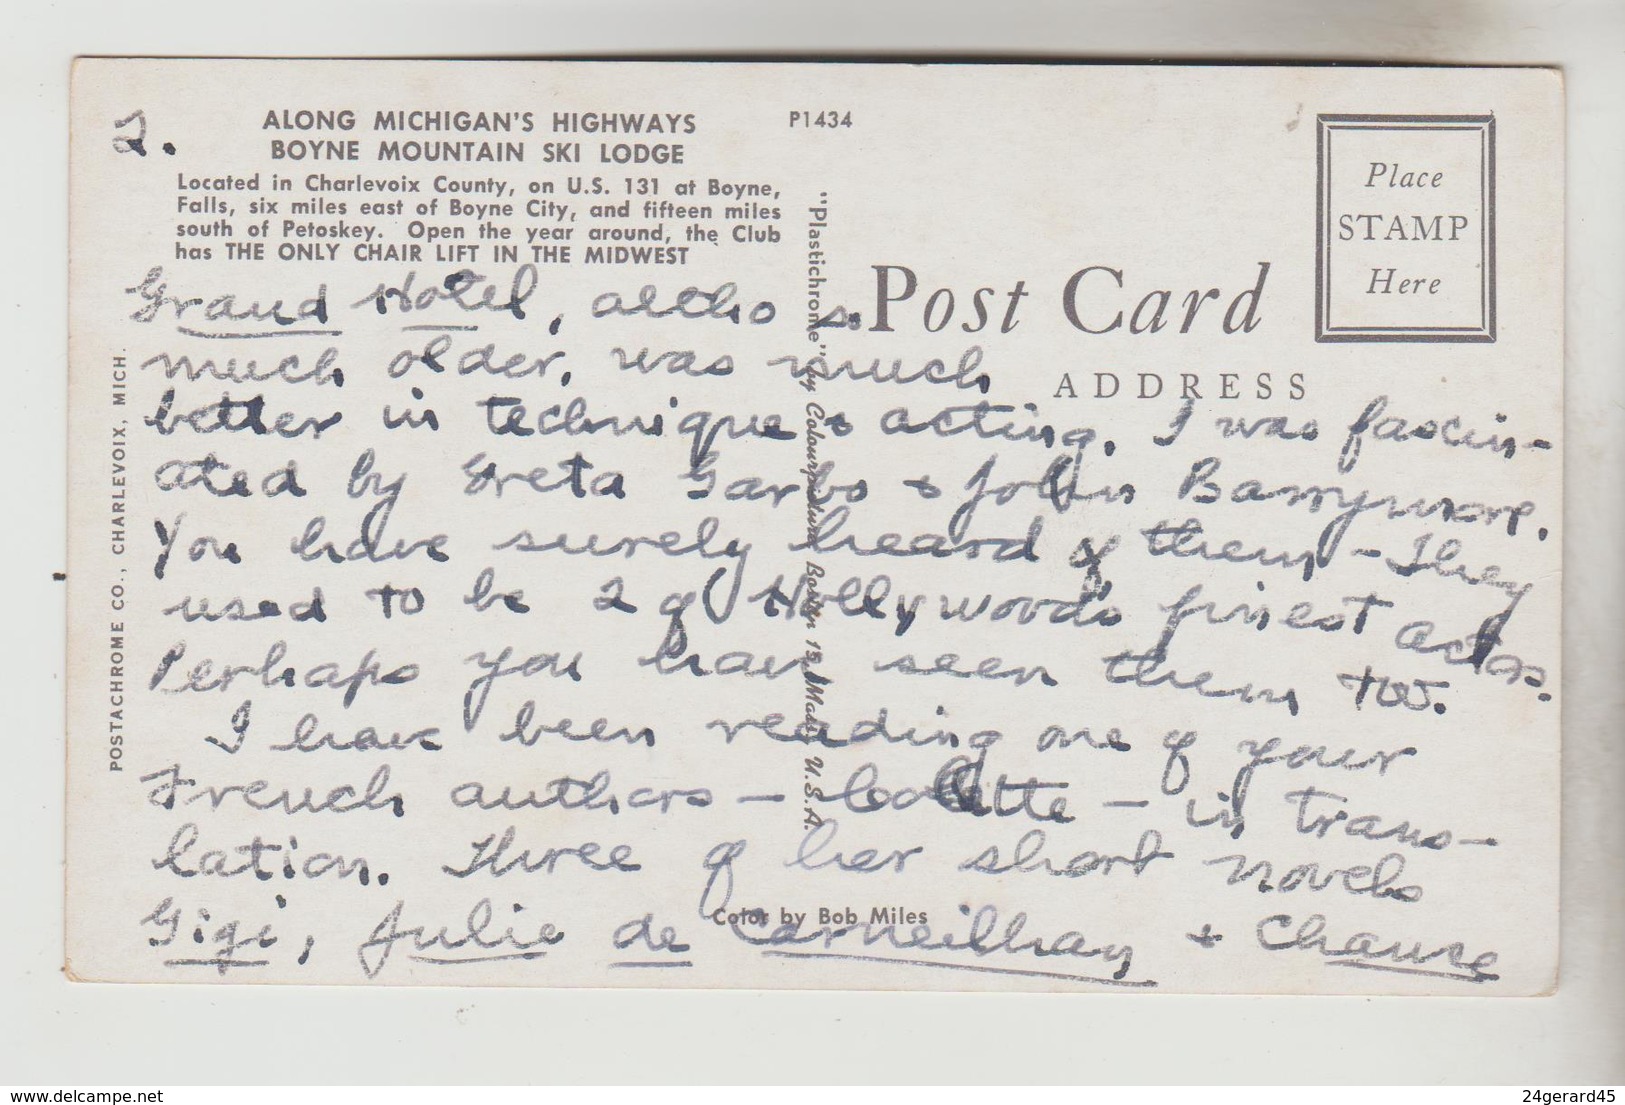 2.
ALONG MICHIGAN'S HIGHWAYS
BOYNE MOUNTAIN SKI LODGE
Located in Charlevoix County, on U.S. 131 at Boyne,
Falls, six miles east of Boyne City, and fifteen miles
south of Petoskey. Open the year around, the Club
has THE ONLY CHAIR LIFT IN THE MIDWEST
P1434
Place
STAMP
Here
Post Card
ADDRESS
POSTACHROME CO., CHARLEVOIX, MICH.
"Plastichrome" by Colourpicture Boston 15, Mass. U.S.A.
Grand Hotel, altho so
much older, was much
better in technique & acting. I was fascin-
ated by Greta Garbo & John Barrymore.
You have surely heard of them - They
used to be 2 of Hollywood's finest actors.
Perhaps you have seen them too.
I have been reading one of your
French authors - Colette - in trans-
lation. Three of her short novels
Gigi, Julie de Carneilhan & Chance
Color by Bob Miles
delcampe.net
24gerard45